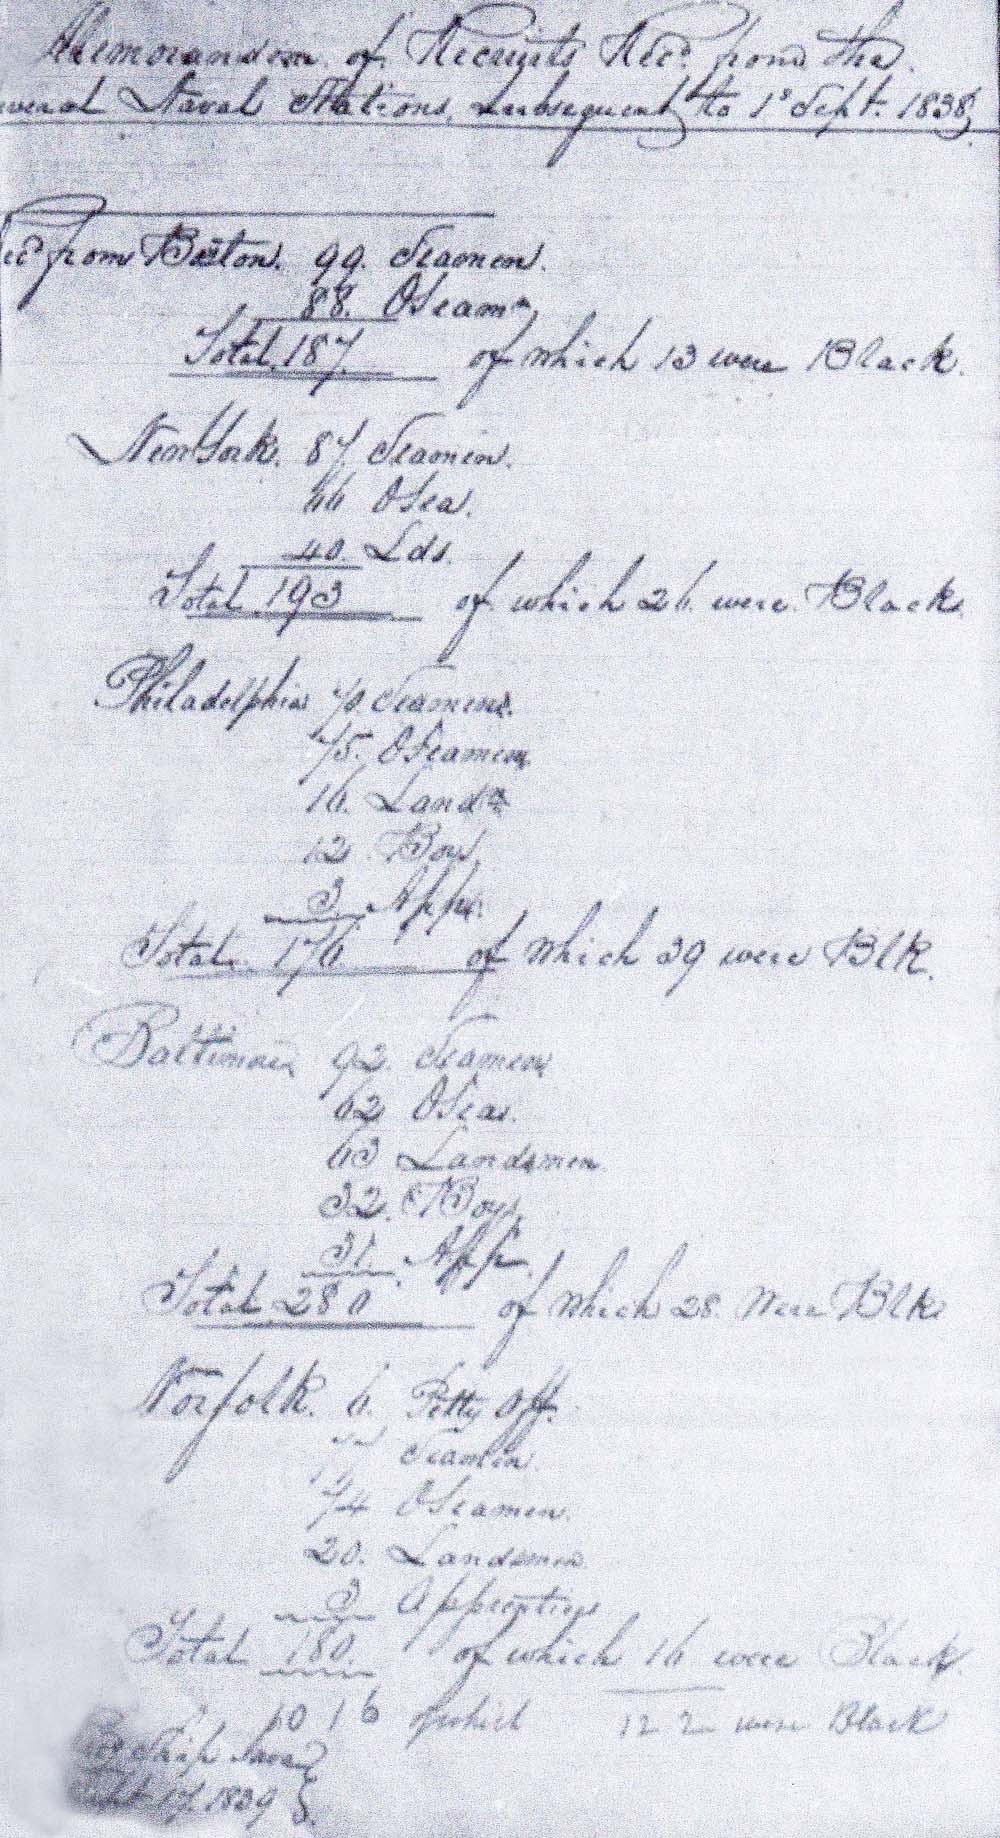 Memorandom of Recruits Rec.d from the
several Naval Stations, Subsequent to 1s Sept. 1838,
Rec.d from Boston. 99. Seamen.
88. OSeamn
Total. 187. of which 13 were Black.
New York. 87 Seamen.
66 OSea.
40. Lds.
Total. 193 of which 26. were Black.
Philadelphia 70 Seamen.
75. OSeamen
16. Lands
12. Boys
3. App.
Total. 176 of which 39 were Blk.
Baltimore 92. Seamen
62 OSea.
63 Landsmen
32. Boys
31. App.
Total 280 of which 28. were Blk
Norfolk. 6. Petty Off.
77 Seamen.
74 OSeamen.
20. Landsmen
3 Apprentices
Total 180. of which 16 were Black.
1016 of which 122 were Black
Ship Java
Sept. 17. 1839